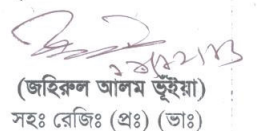 (জহিরুল আলম ভূঁইয়া)
সহঃ রেজিঃ (প্রঃ) (ভাঃ)